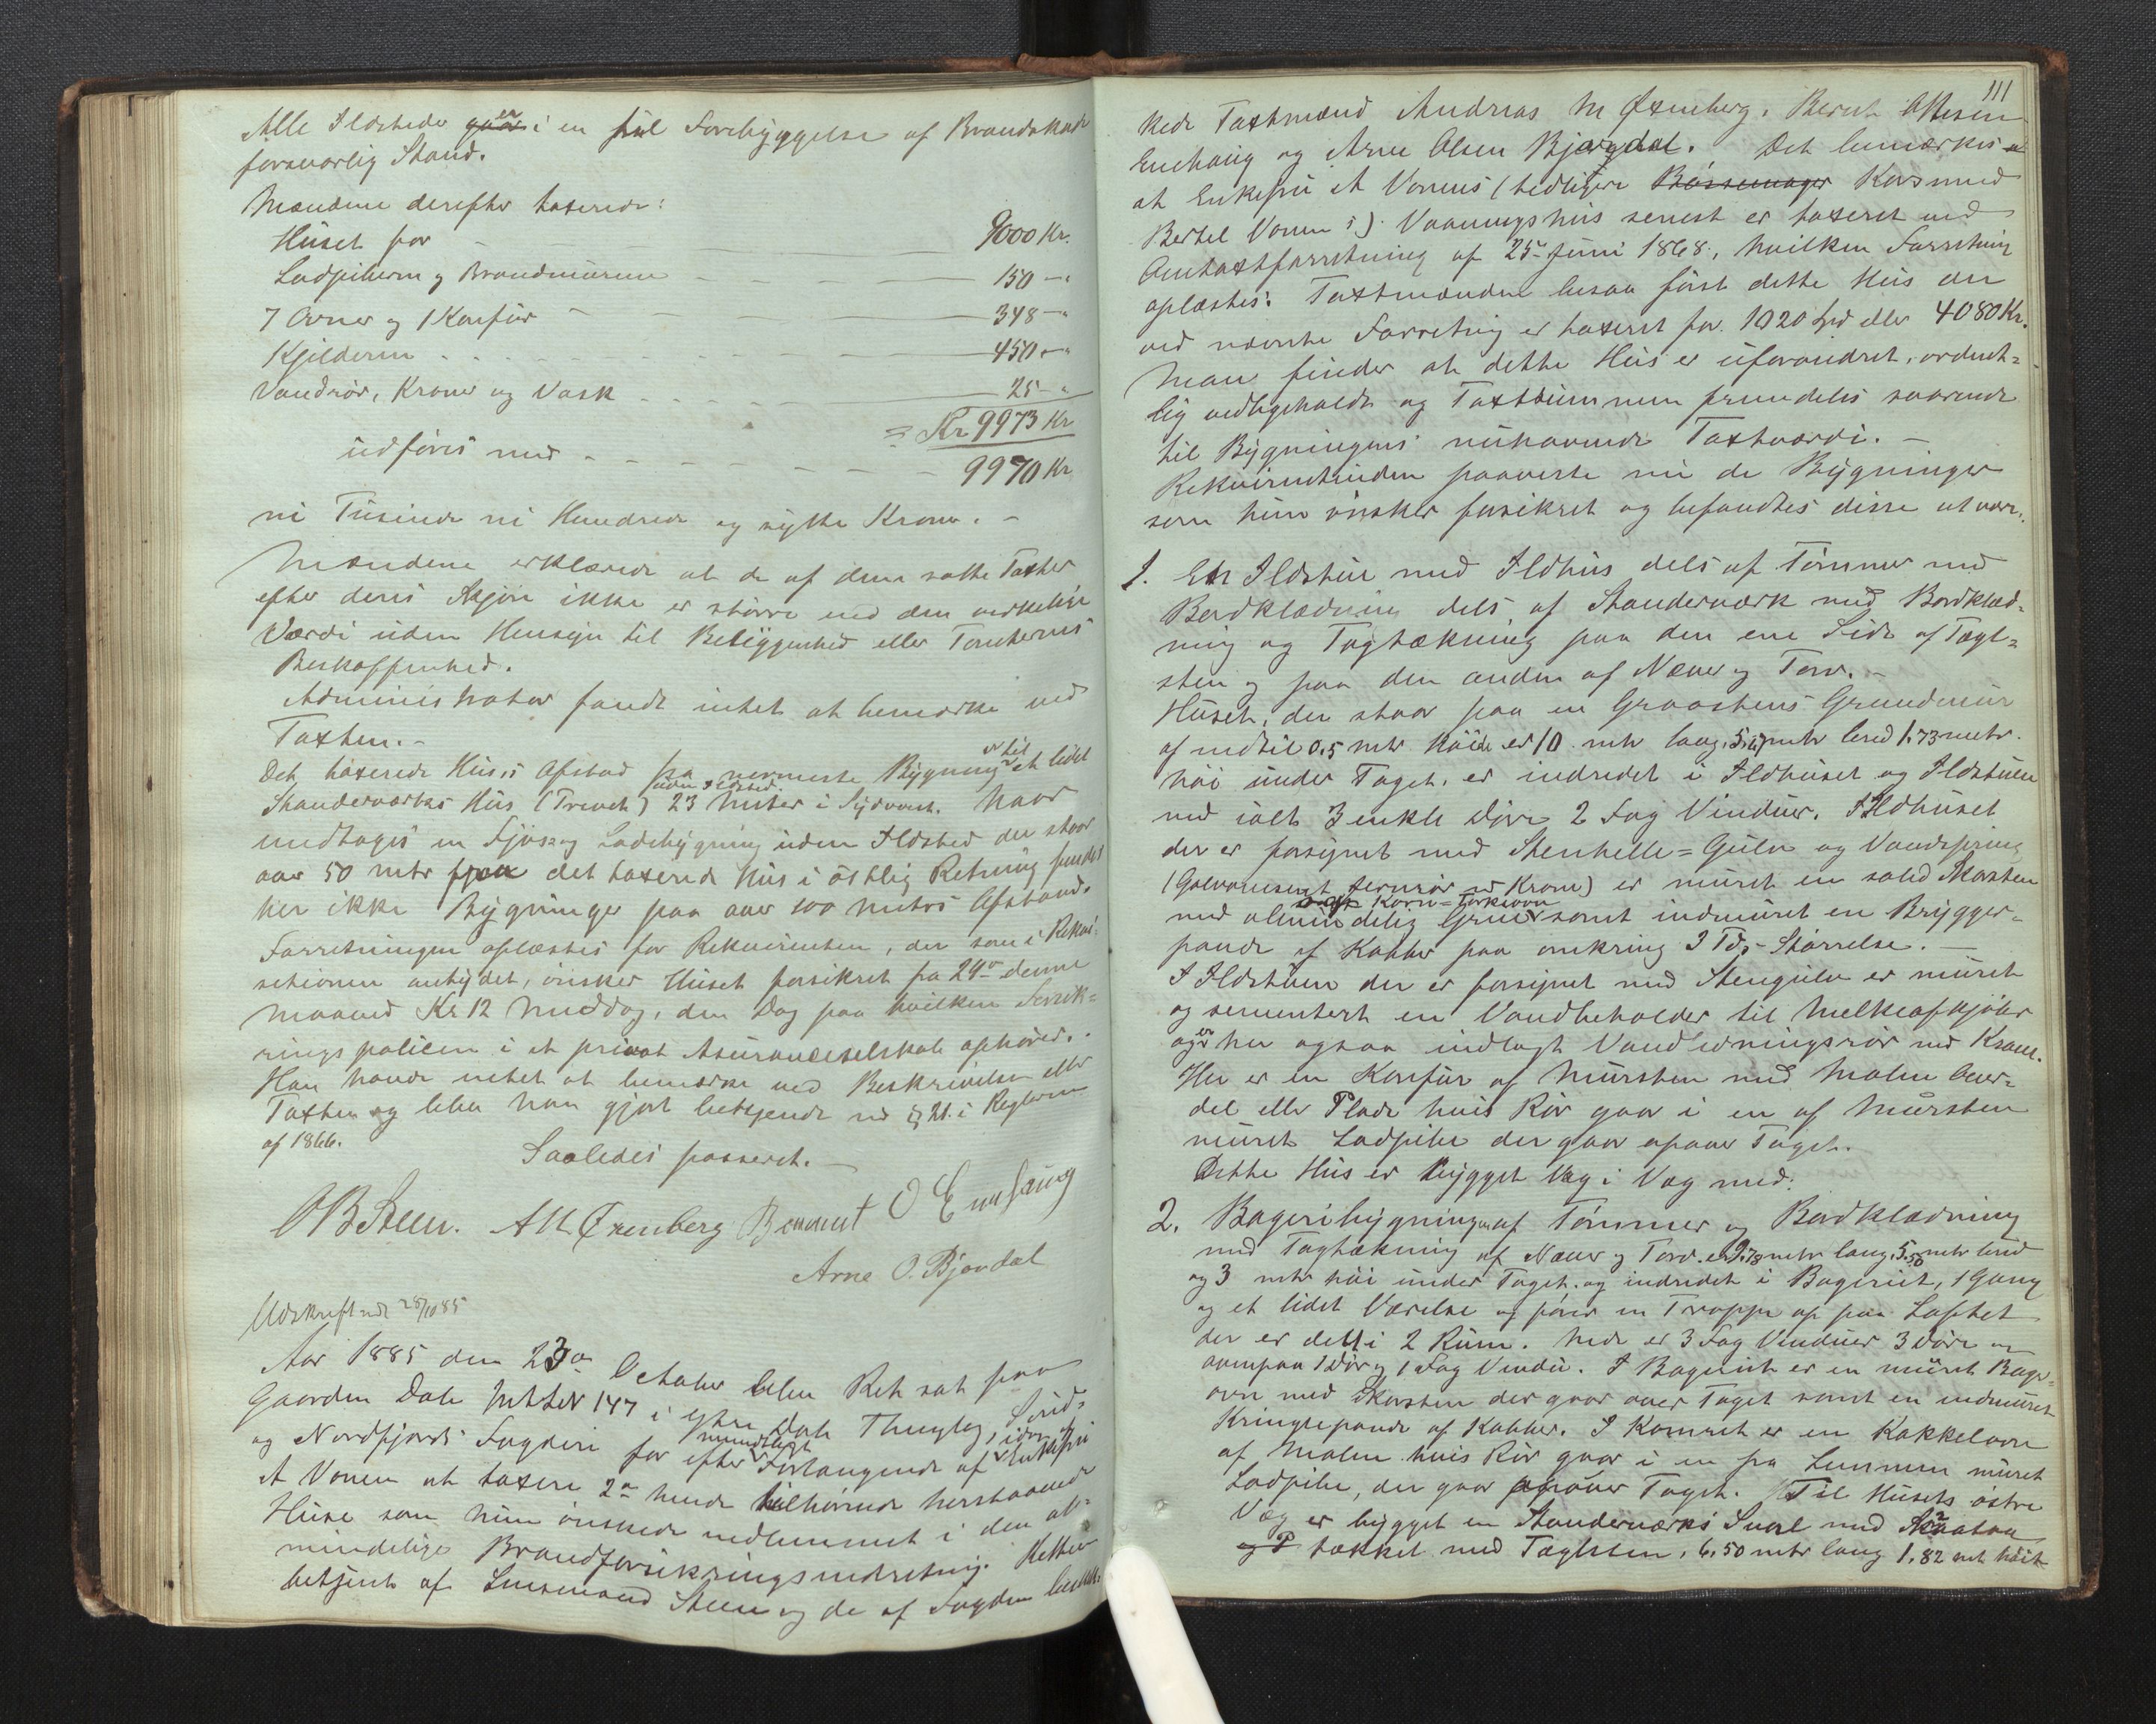 Alle Ildsteder er i en til Forebyggelse af Brandskade
forsvarlig Stand.
Mændene derefter taxerede:
Huset for 9000 Kr.
Ladpiberne og Brandmurene 150 - "
7 Ovner og 1 Komfur 348 - "
Kjelderen 450 - "
Vandrør, Kraner og Vask 25 - "
= Kr 9973 Kr
udføres med 9970 Kr
ni Tusinde ni Hundrede og sytti Kroner. -
Mændene erklærede at de af dem satte Taxter
efter deres Skjøn ikke er større end den virkelige
Værdi uden Hensyn til Beliggenhed eller Tomternes
Beskaffenhed.
Administrator fandt intet at bemærke ved
Taxten. -
Det taxerede Hus's Afstand fra nærmeste Bygning er til et lidet
Standerværks Hus (Trevet) uden Ildsted. 23 Meter i Sydvest. Naar
undtages en Fjøs og Ladebygning uden Ildsted der staar
over 50 mtr fra det taxerede Hus i østlig Retning findes
her ikke Bygninger paa over 100 meters Afstand.
Forretningen oplæstes for Rekvirenten, der som i Rekvi-
sitionen antydet, ønsker Huset forsikret fra 29de denne
Maaned Kl 12 Middag, den Dag paa hvilken Forsik=
rings policen i et privat Assuranceselskab ophører. -
Han havde intet at bemærke ved Beskrivelsen eller
Taxten og blev han gjort bekjendt med § 21 i Reglerne
af 1866.
Saaledes passeret. -
OB Steen. A M Øxenberg Berent O Enehaug
Arne O. Bjørdal
Udskrift udt 28/10 85
Aar 1885 den 23de October blev Ret sat paa
Gaarden Dale Mtr No 147 i ytre Dale Thinglag, Sønd=
og Nordfjords Fogderi for efter mundtligt Forlangende af Enkefru
A Vonen at taxere 2de hende tilhørende herstaaende
Huse som hun ønskede indlemmet i den al=
mindelige Brandforsikringsindretning. Retten
betjent af Lensmand Steen og de af Fogden beskik-
111
kede Taxtmænd Andreas M Øxenberg, Berent Ottesen
Enehaug og Arne Olsen Bjørgdal. Det bemærkes
at Enkefru A Vonens (tidligere Bøssemager Rasmus
Bertel Vonen's) Vaaningshus senest er taxeret ved
Omtaxtforretning af 25de Juni 1868, hvilken Forretning
oplæstes. Taxtmændene besaa først dette Hus der
ved nævnte Forretning er taxeret for 1020 Spd eller 4080 Kr.
Man finder at dette Hus er uforandret, ordent=
lig vedligeholdt og Taxtsummen fremdeles svarende
til Bygningens nuhavende Taxtværdi. -
Rekvirentinden paaviste nu de Bygninger
som hun ønsker forsikret og befandtes disse at være:
1. En Ildstue med Ildhus dels af Tømmer med
Bordklædning dels af Standerværk med Bordklæd=
ning og Tagtækning paa den ene Side af Tagl=
sten og paa den anden af Næver og Torv. -
Huset, der staar paa en Graastens Grundmur
af indtil 0.5 mtr Høide er 10 mtr lang, mtr bred 1.73 metr.
høi under Taget, er indredet i Ildhuset og Ildstuen
med ialt 3 enkle Døre 2 Fag Vinduer. Ildhuset
der er forsynet med Stenhelle=Gulv og Vandspring
(Galvaniseret Jernrør og Krane) er muret en solid Skorsten
med almindelig Grue og Korn=Tørkeovn samt indmuret en Brygger=
pande af Kobber paa omkring 3 Td. Størrelse. -
I Ildstuen der er forsynet med Stengulv er muret
og sementert en Vandbeholder til Melkeafkjøler
og er her ogsaa indlagt Vandledningsrør med Krane.
Her er en Komfur af Mursten med Malm Over=
del eller Plade hvis Rør gaar i en af Mursten
muret Ladpibe der gaar opover Taget.
Dette Hus er bygget Væg i Væg med:
2. Bageribygningen af Tømmer og Bordklædning
med Tagtækning af Næver og Torv. er 9.78 mtr lang, 5.50 mtr bred
og 3 mtr høi under Taget. og indredet i Bageriet, 1 Gang
og et lidet Værelse og fører en Trappe op paa Loftet
der er delt i 2 Rum. Nede er 3 Fag Vinduer 3 Døre og
ovenpaa 1 Dør og 1 Fag Vindu. I Bageriet er en muret Bager=
ovn med Skorsten der gaar over Taget samt en indmuret
Kringlepande af Kobber. I Kammeret er en Kakkelovn
af Malm hvis Rør gaar i en fra Lemmen muret
Ladpibe, der gaar opover Taget. Til Husets østre
Væg er bygget en Standerværks Sval med Skraatag
tækket med Taglsten, 6,50 mtr lang 1.82 mtr høit